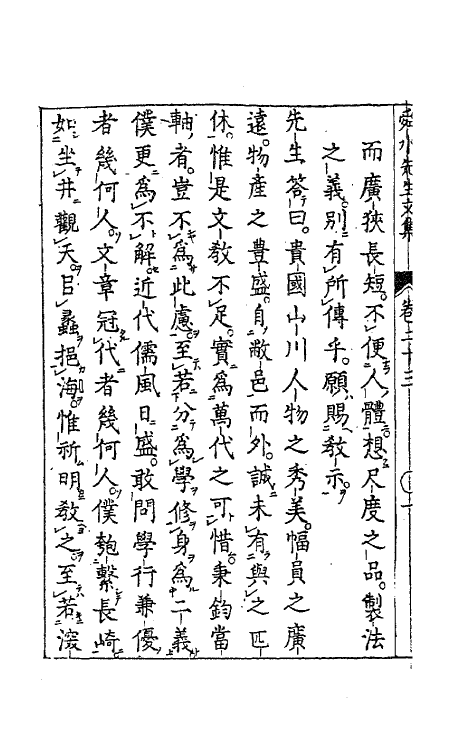 舜水先生文集 卷二十三
而廣狹長短。不便人體。想尺度之品。製法
之義。別有所傳乎。願賜教示。
先生答曰。貴國山川人物之秀美。幅員之廣
遠。物產之豊盛。自敝邑而外。誠未有與之匹
休。惟是文教不足。實為萬代之可惜。秉鈞當
軸者。豈不為此慮。至若分為學修身為二義。
僕更為不解。近代儒風日盛。敢問學行兼優
者幾何人。文章冠代者幾何人。僕匏繫長崎
如坐井觀天。㠯蠡挹海。惟祈明教之。至若深